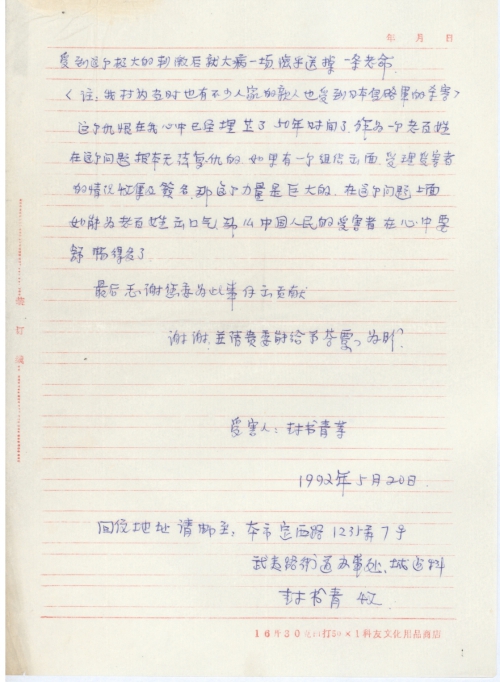 年 月 日
受到这个极大的刺激后就大病一场险乎送掉一条老命.
（注:我村的当时也有不少人家的亲人也受到日本侵略军的杀害）
这个仇恨在我心中已经埋了50年时间了,作为一个老百姓
在这个问题根本无法复仇的.如果有一个组织出面,受理受害者
的情况收集及签名,那这个力量是巨大的.在这个问题上面
如能为老百姓出口气,那么中国人民的受害者在心中要
舒畅得多了
最后感谢您委为此事作出贡献
谢谢,並请贵委能给予答覆,为盼?
受害人:林书青等
1992年5月20日.
回信地址请邮至:本市定西路1235弄7号
武夷路街道办事处,城占科
林书青 收
装 订 线
16开30 双面打50×1科友文化用品商店